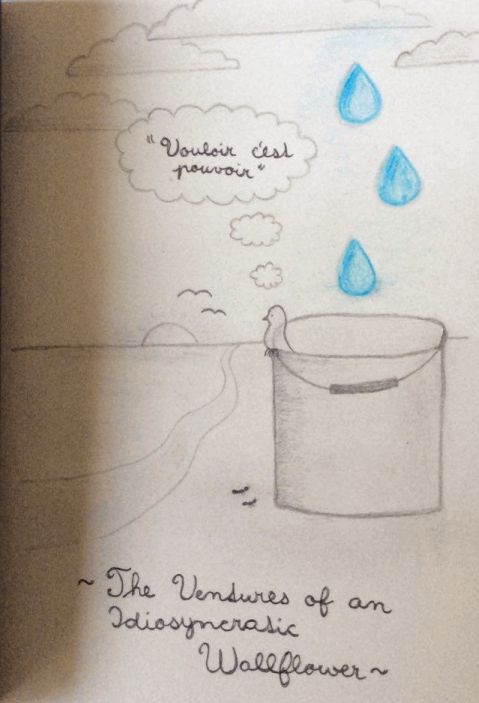 "Vouloir c'est
pouvoir"
~ The Ventures of an
Idiosyncratic
Wallflower ~